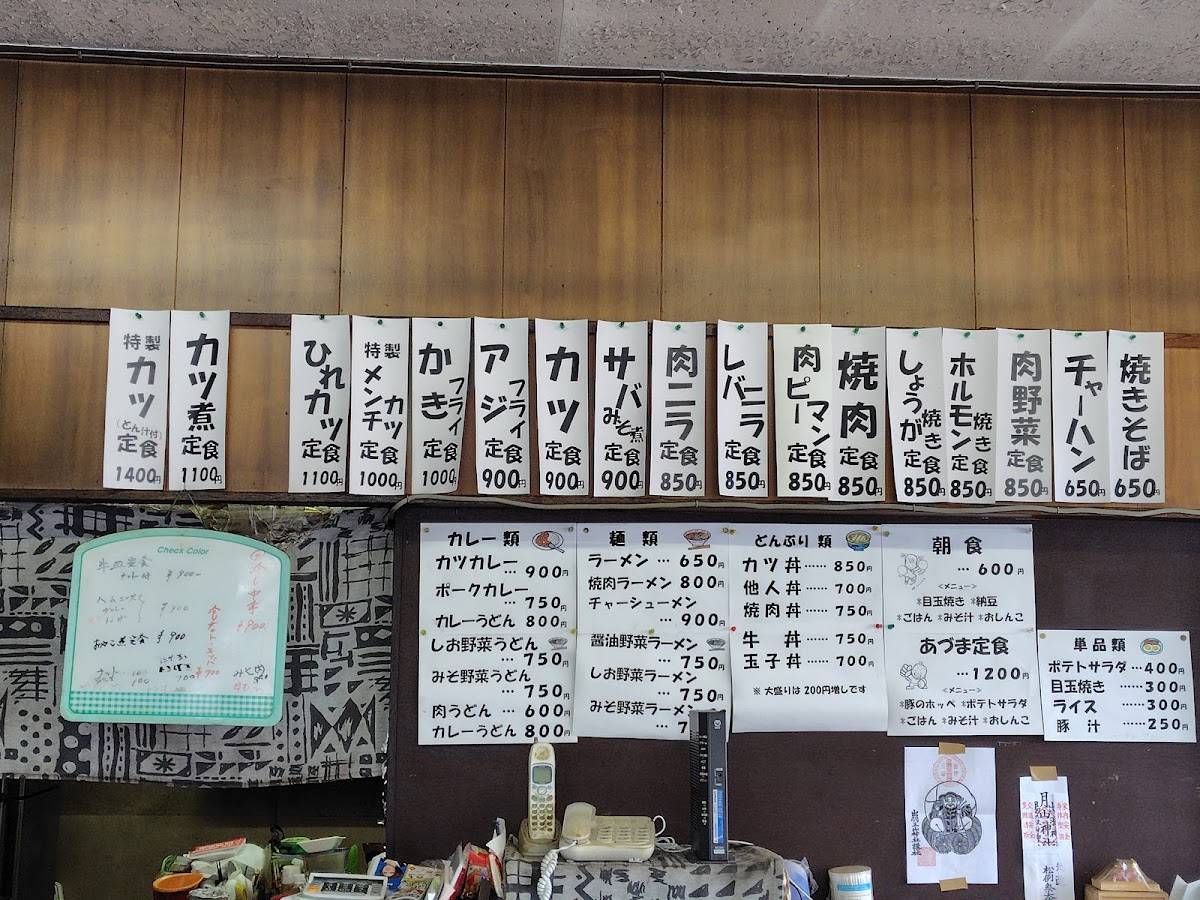 特製カツ(とん汁付)定食1400円
カツ煮定食1100円
ひれカツ定食1100円
特製メンチカツ定食1000円
かきフライ定食1000円
アジフライ定食900円
カツ定食900円
サバみそ煮定食900円
肉ニラ定食850円
レバーニラ定食850円
肉ピーマン定食850円
焼肉定食850円
しょうが焼き定食850円
ホルモン焼き定食850円
肉野菜定食850円
チャーハン650円
焼きそば650円
Check Color
カレー類
カツカレー
… 900円
ポークカレー
… 750円
カレーうどん 800円
しお野菜うどん
… 750円
みそ野菜うどん
… 750円
肉うどん … 600円
カレーうどん 800円
麺類
ラーメン … 650円
焼肉ラーメン 800円
チャーシューメン
… 900円
醤油野菜ラーメン
… 750円
しお野菜ラーメン
… 750円
みそ野菜ラーメン
どんぶり類
カツ丼…… 850円
他人丼…… 700円
焼肉丼…… 750円
牛丼…… 750円
玉子丼…… 700円
※大盛りは200円増しです
朝食
… 600円
<メニュー>
*目玉焼き *納豆
*ごはん *みそ汁 *おしんこ
あづま定食
… 1200円
<メニュー>
*豚のホッペ *ポテトサラダ
*ごはん *みそ汁 *おしんこ
単品類
ポテトサラダ… 400円
目玉焼き …… 300円
ライス …… 300円
豚汁 …… 250円